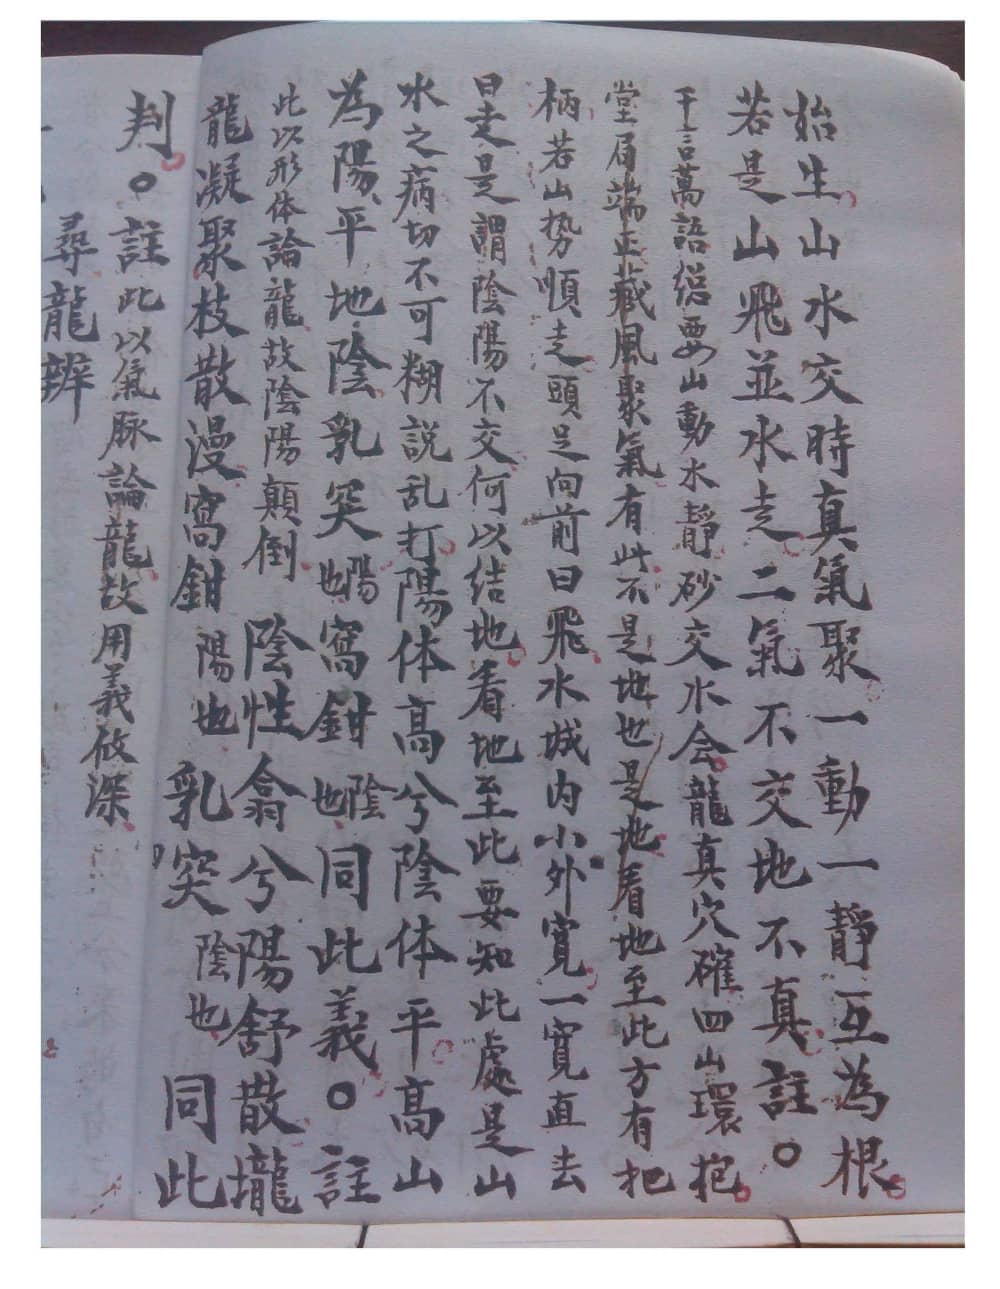 始生山水交時真氣聚一動一靜互為根
若是山飛並水走二氣不交地不真註○
千言萬語緫要山動水靜砂交水会龍真穴確四山環抱
堂局端正藏風聚氣有此不是地也是地看地至此方有把
柄若山势順走頭足向前曰飛水城内小外寬一寬直去
曰走是謂陰陽不交何以结地看地至此要知此處是山
水之病切不可糊説乱打陽体高兮陰体平高山
為陽平地陰乳突陽也窩鉗陰也同此義○註
此以形体論龍故陰陽顛倒陰性翕兮陽舒散攏
龍凝聚枝散漫窩鉗陽也乳突陰也同此
判○註此以氣脉論龍故用義攸深
尋龍辨